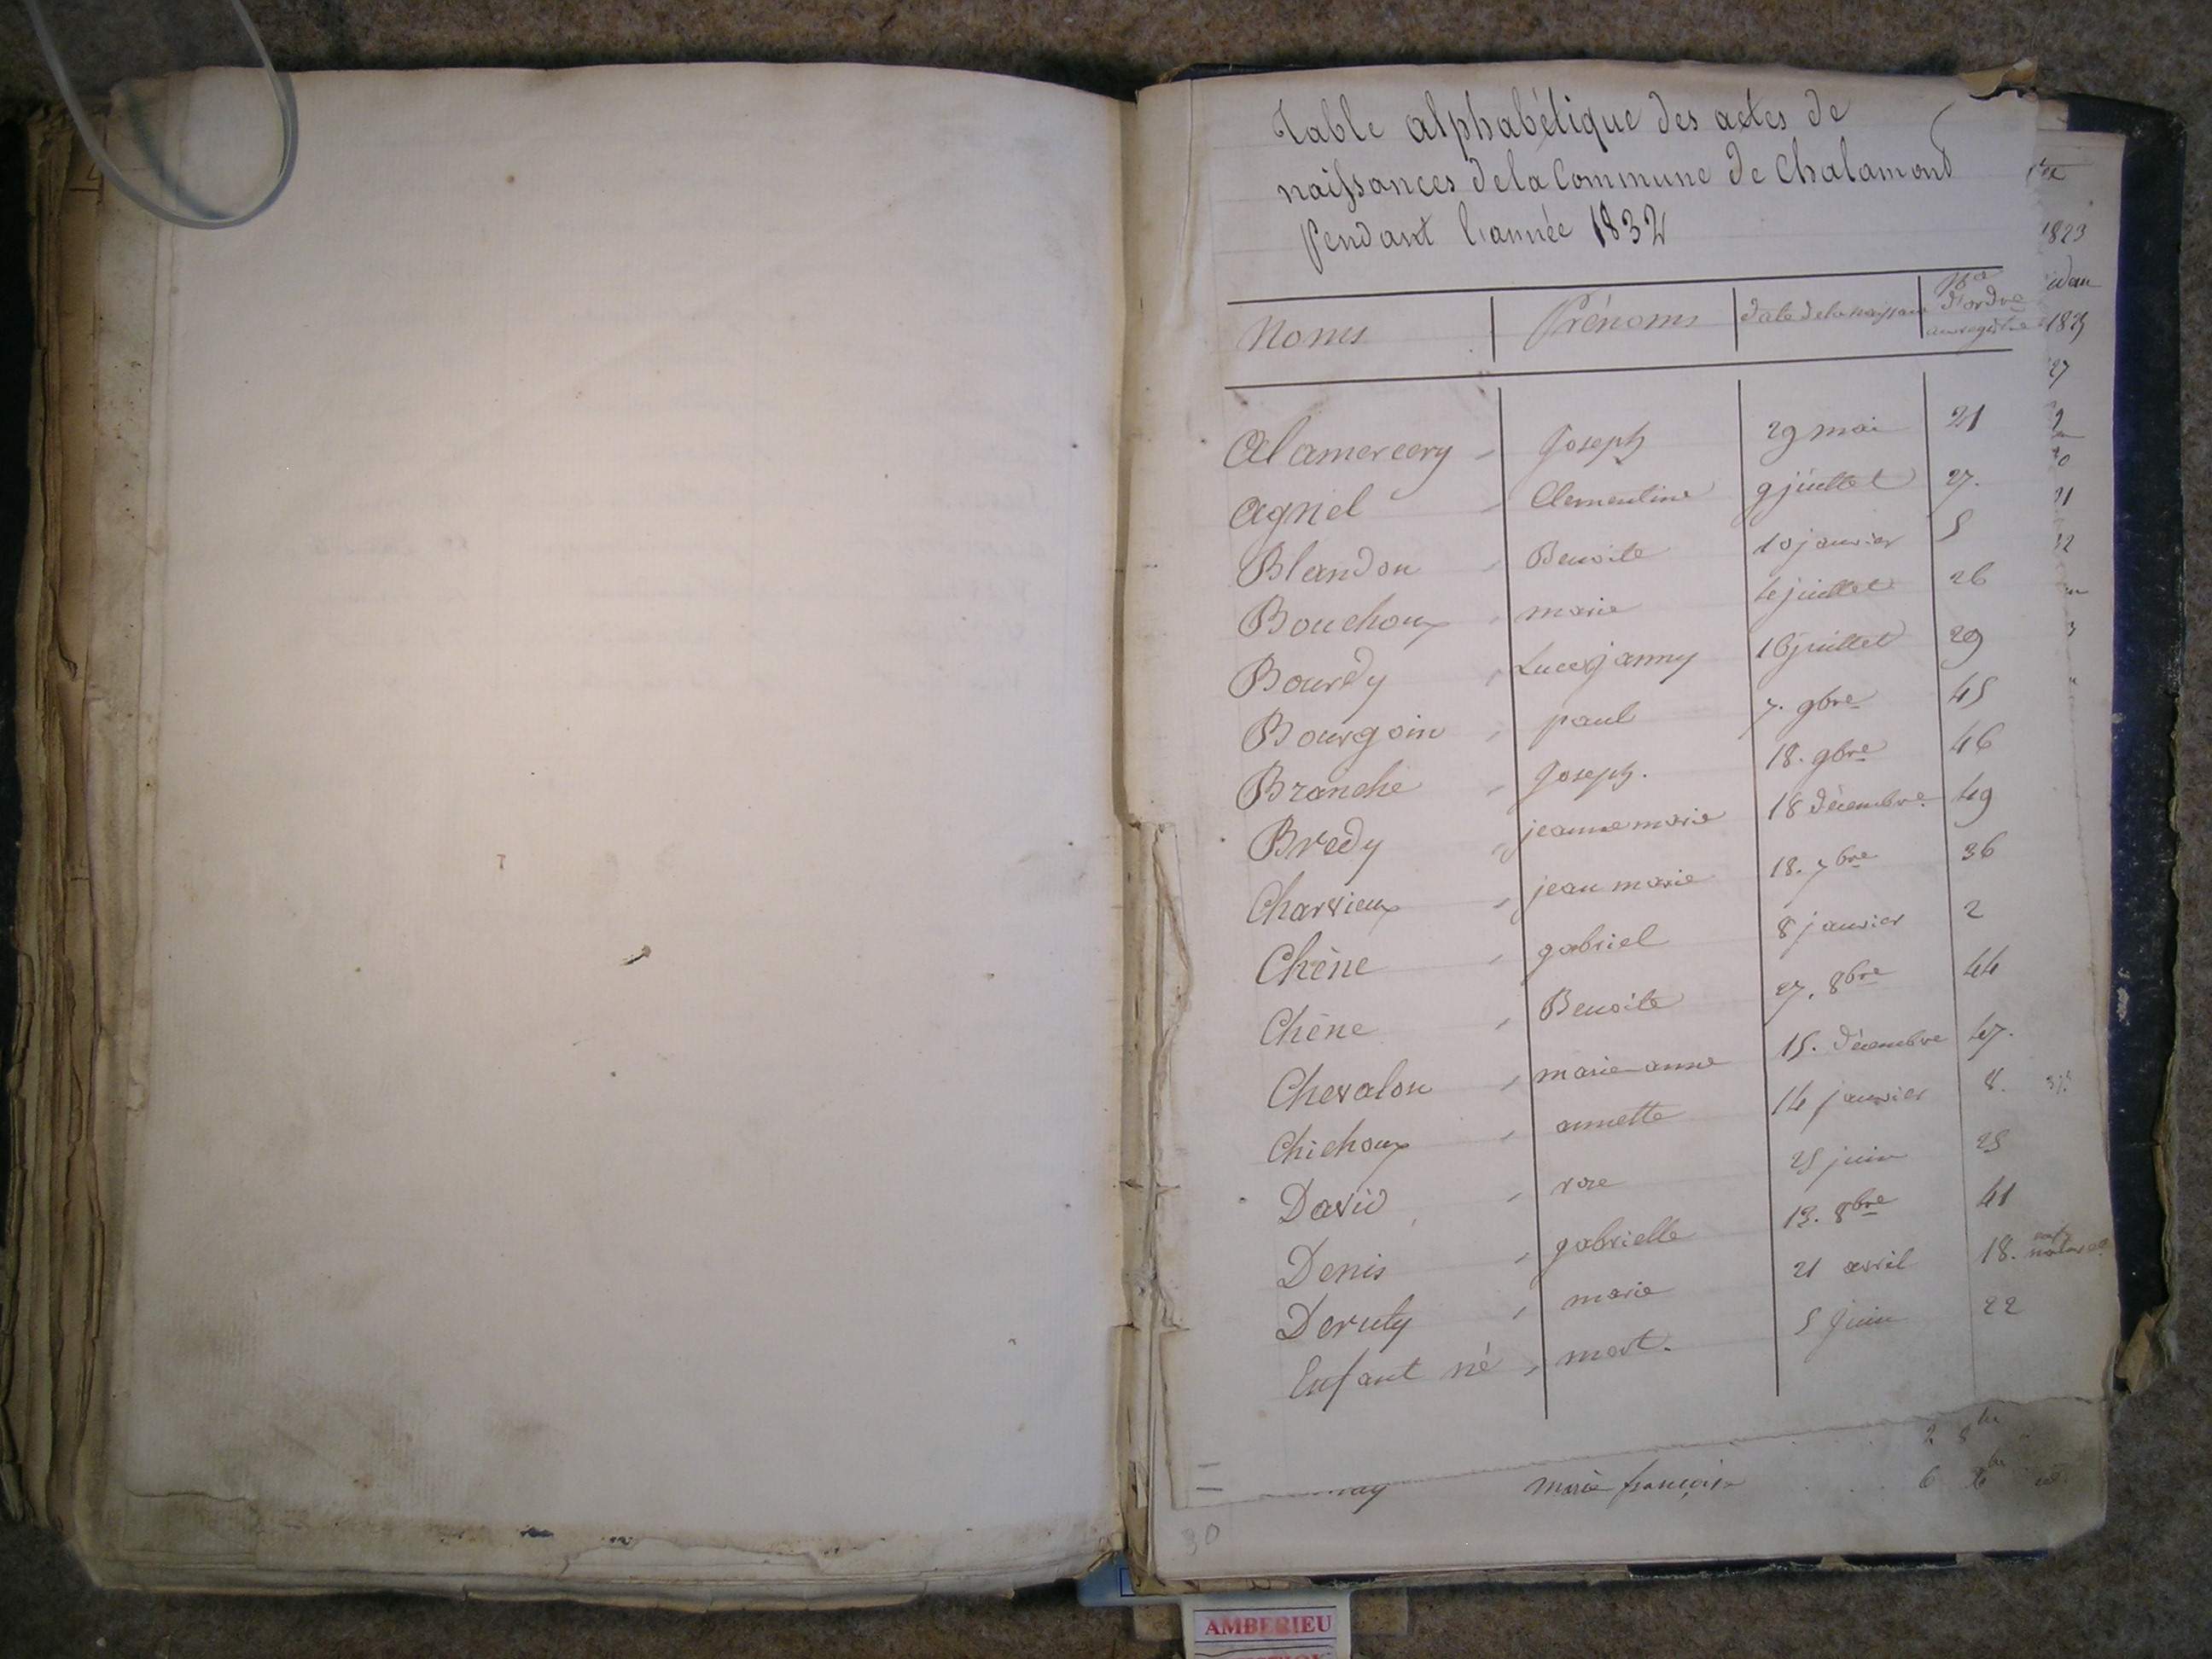 Table alphabétique des actes de
naissances de la Commune de Chalamond
pendant l'année 1832
Noms Prénoms date de la naissance Nos d'ordre au registre
Alamercery Joseph 29 mai 21
Agniel Clementine 9 juillet 27.
Blandon Benoite 10 janvier 5
Bouchoux marie 4 juillet 26
Bourdy Luce janny 16 juillet 29
Bourgoin paul 7. 9bre 45
Branche Joseph. 18. 9bre 46
Bredy jeanne marie 18 décembre 49
Charvieux jean marie 18. 7bre 36
Chêne gabriel 8 janvier 2
Chêne Benoite 27. 8bre 44
Chevalon marie anne 15. décembre 47.
Chichoux annette 14 janvier 8.
David rose 25 juin 25
Denis gabrielle 13. 8bre 41
Deruty marie 21 avril 18.
Enfant né mort. 5 juin 22
2 8bre
marie françoise 6 id
30
1823
27
AMBERIEU